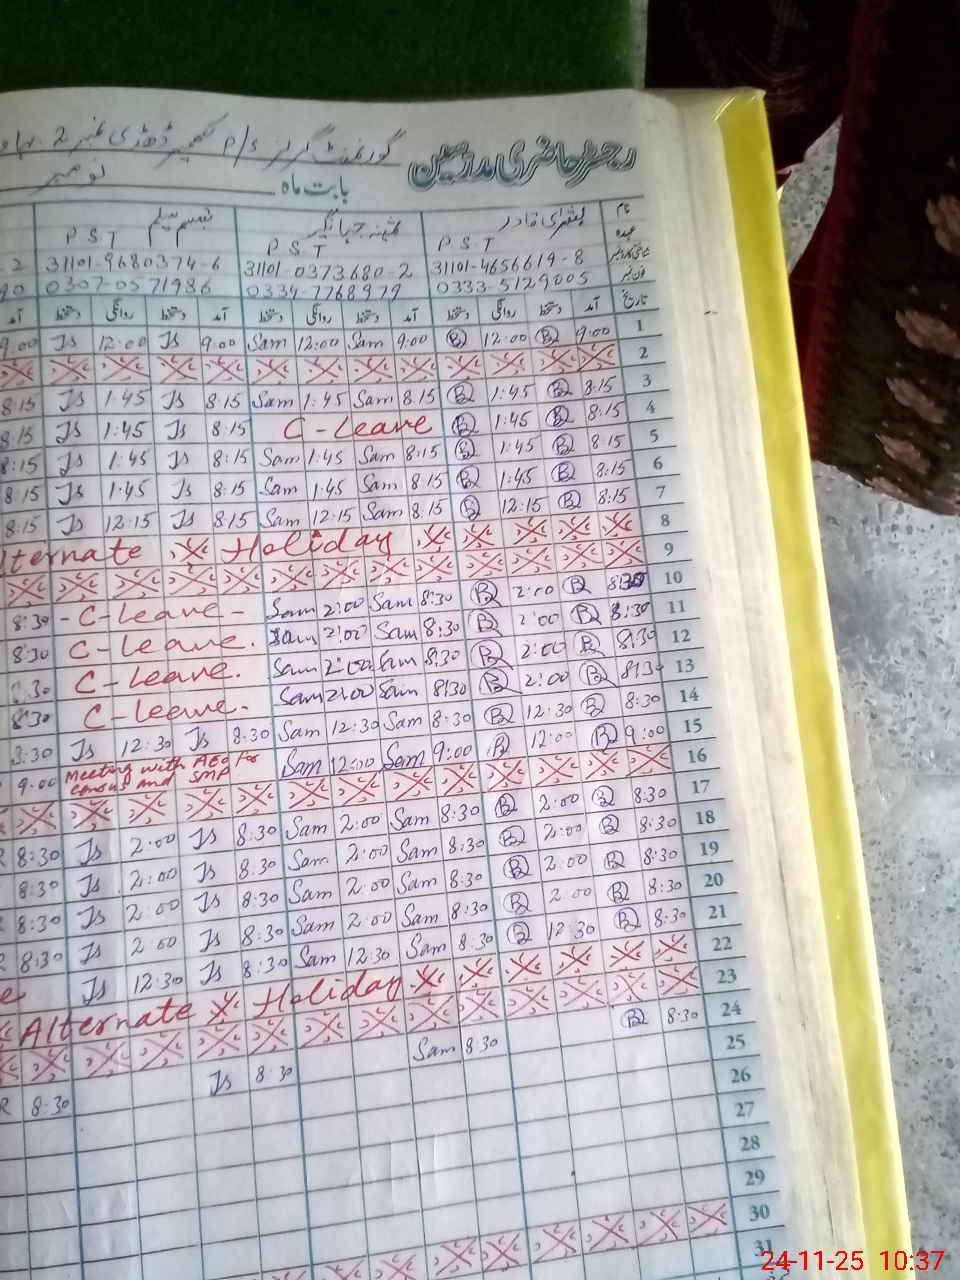 رجسٹر حاضری مدرسین گورنمنٹ گرلز P/S نمبر 2
بابت ماہ نومبر
نام بشریٰ قادر جہانگیر تبسم سلیم
عہدہ P S T P S T P S T
31101-4656619-8 31101-0373680-2 31101-9680374-6
فون نمبر 0333-5129005 0334-7768979 0307-0571986
تاریخ آمد دستخط روانگی دستخط آمد دستخط روانگی دستخط آمد دستخط روانگی دستخط آمد
1 9:00 B 12:00 B 9:00 Sam 12:00 Sam 9:00 Js 12:00 Js 9:00
2
3 8:15 B 1:45 B 8:15 Sam 1:45 Sam 8:15 Js 1:45 Js 8:15
4 8:15 B 1:45 B C-Leave 8:15 Js 1:45 Js 8:15
5 8:15 B 1:45 B 8:15 Sam 1:45 Sam 8:15 Js 1:45 Js 8:15
6 8:15 B 1:45 B 8:15 Sam 1:45 Sam 8:15 Js 1:45 Js 8:15
7 8:15 B 12:15 B 8:15 Sam 12:15 Sam 8:15 Js 12:15 Js 8:15
8 Alternate Holiday
9
10 8:30 B 2:00 B 8:30 Sam 2:00 Sam - C-Leave - 8:30
11 8:30 B 2:00 B 8:30 Sam 2:00 Sam C-Leave. 8:30
12 8:30 B 2:00 B 8:30 Sam 2:00 Sam C-Leave. :30
13 8:30 B 2:00 B 8:30 Sam 2:00 Sam C-Leave. 8:30
14 8:30 B 12:30 B 8:30 Sam 12:30 Sam 8:30 Js 12:30 Js 8:30
15 9:00 B 12:00 B 9:00 Sam 12:00 Sam Meeting with AEO for census and SMP 9:00
16
17 8:30 B 2:00 B 8:30 Sam 2:00 Sam 8:30 Js 2:00 Js 8:30 R
18 8:30 B 2:00 B 8:30 Sam 2:00 Sam 8:30 Js 2:00 Js 8:30
19 8:30 B 2:00 B 8:30 Sam 2:00 Sam 8:30 Js 2:00 Js 8:30 R
20 8:30 B 2:00 B 8:30 Sam 2:00 Sam 8:30 Js 2:00 Js 8:30 R
21 8:30 B 12:30 B 8:30 Sam 12:30 Sam 8:30 Js 12:30 Js
22 Alternate Holiday
23
24 8:30 B 8:30 Sam 8:30 Js 8:30 R
25
26
27
28
29
30
31
24-11-25 10:37